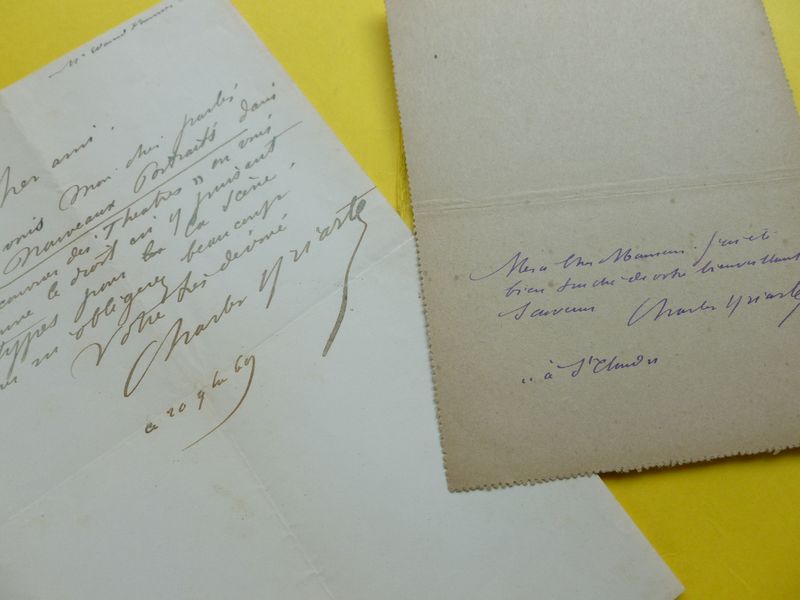 cher ami.
vous mon cher parlé
Nouveaux Portraits dans
des Théâtres" on vous
le droit en y puisant
types pour la Scène.
obligerez beaucoup
Votre très dévoué
Charles Yriarte
ce 20 9bre 69
Merci cher Monsieur. J'ai été
bien touché de votre bienveillant
Souvenir Charles Yriarte
à St Cloud